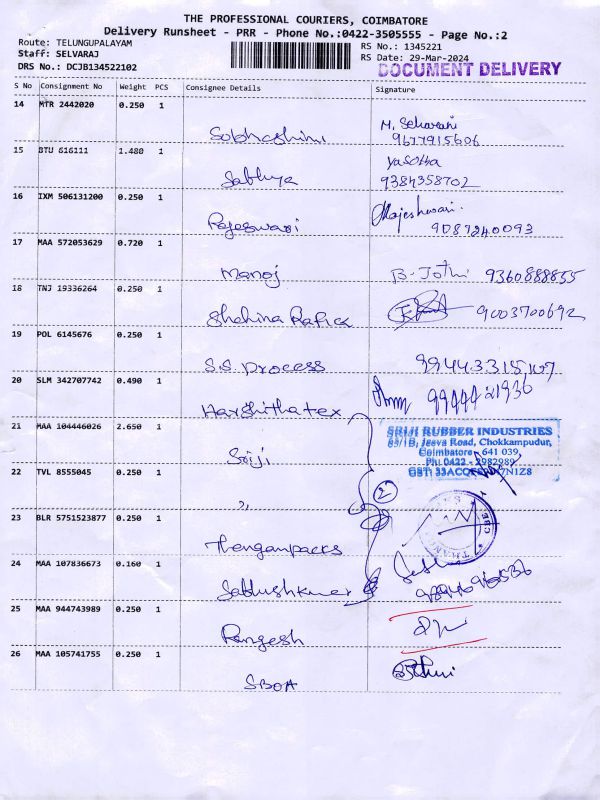 THE PROFESSIONAL COURIERS, COIMBATORE
Delivery Runsheet - PRR - Phone No.:0422-3505555 - Page No.:2
Route: TELUNGUPALAYAM
Staff: SELVARAJ
DRS No.: DCJB134522102
RS No.: 1345221
RS Date: 29-Mar-2024
DOCUMENT DELIVERY
S No Consignment No Weight PCS Consignee Details Signature
14 MTR 2442020 0.250 1
Sobhashini M. Sekarani 9677915606
15 BTU 616111 1.480 1
Sathya Yasotha 9384358702
16 IXM 506131200 0.250 1
Rajeswari Majeshwari. 9087240093
17 MAA 572053629 0.720 1
Manoj B. Jothi 9360888855
18 TNJ 19336264 0.250 1
Shahina Rafica 9003700692
19 POL 6145676 0.250 1
S.S. Process
20 SLM 342707742 0.490 1
Harshitha tex 9944421936
21 MAA 104446026 2.650 1
Sriji
SRIJI RUBBER INDUSTRIES
65/1B, Jeeva Road, Chokkampudur,
Coimbatore - 641 039.
Ph: 0422 - 2982989
22 TVL 8555045 0.250 1
,,
23 BLR 5751523877 0.250 1
Thenganpacks
24 MAA 107836673 0.160 1
Sathushkumar
25 MAA 944743989 0.250 1
Rangesh
26 MAA 105741755 0.250 1
SBOA